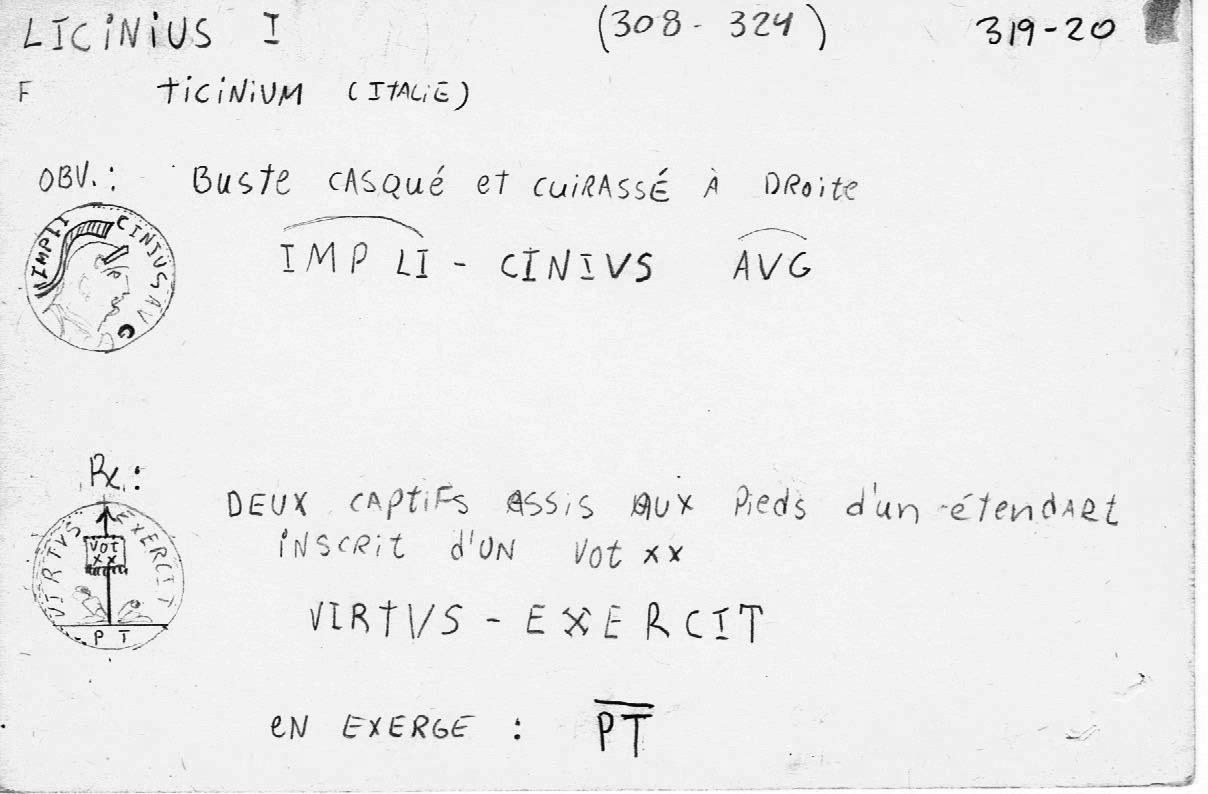 LICINIUS I (308 - 324) 319-20
F TICINIUM (ITALIE)
OBV.: BUSTE CASQUÉ ET CUIRASSÉ À DROITE
IMPLI CINIUS AVG
IMP LI - CINIVS AVG
R/.:
DEUX CAPTIFS ASSIS AUX PIEDS D'UN ÉTENDART
INSCRIT D'UN VOT XX
VIRTVS EXERCIT
VOT
XX
P T
VIRTVS - EXERCIT
EN EXERGE : PT